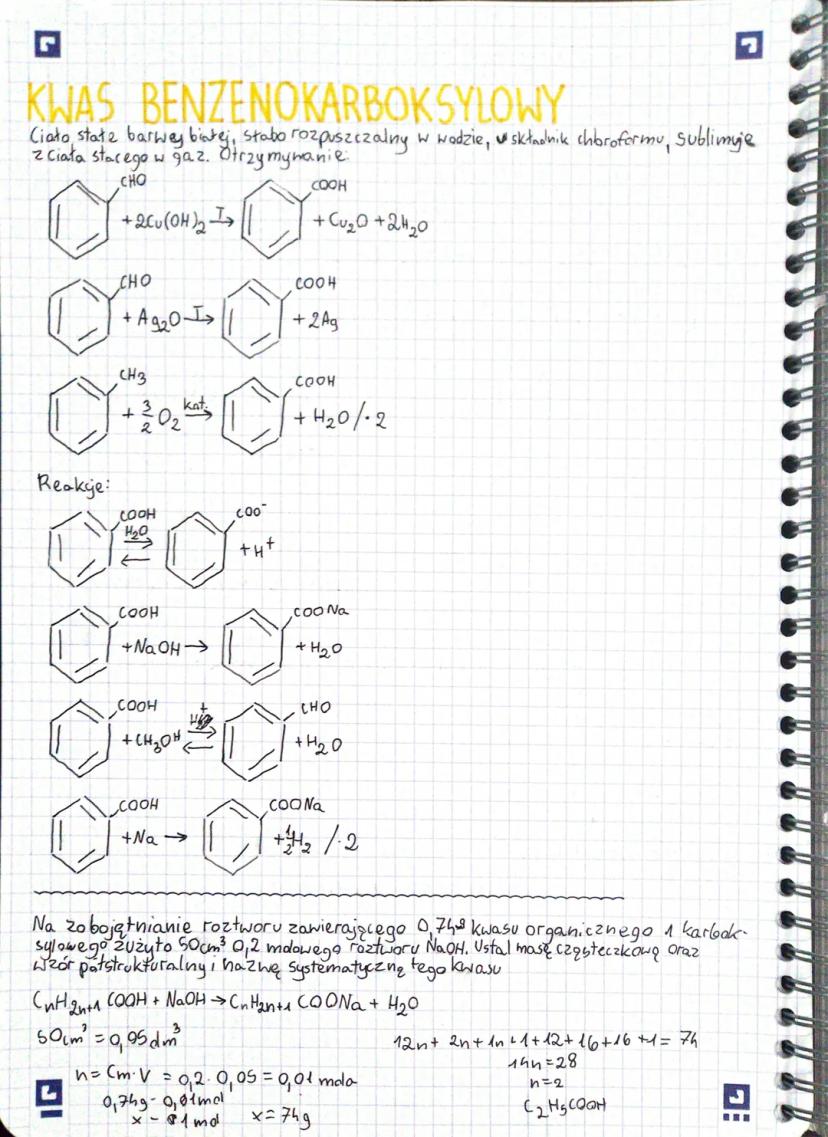 KWAS BENZENOKARBOKSYLOWY
Ciało stałe barwy białej, słabo rozpuszczalny w wodzie, składnik chloroformu, sublimuje
z ciała stałego w gaz. Otrzymywanie:
CHO + 2Cu(OH)₂ T→ COOH + Cu₂O + 2H₂O
CHO + Ag₂O T→ COOH + 2Ag
CH3 + 3/2 O₂ kat.→ COOH + H₂O /·2
Reakcje:
COOH H₂O ⇄ COO⁻ + H⁺
COOH + NaOH → COONa + H₂O
COOH + CH₃OH H⁺ ⇄ CHO + H₂O
COOH + Na → COONa + 1/2 H₂ /·2
Na zobojętnianie roztworu zawierającego 0,74g kwasu organicznego 1 karbok-
sylowego zużyto 50cm³ 0,2 molowego roztworu NaOH. Ustal masę cząsteczkową oraz
wzór półstrukturalny i nazwę systematyczną tego kwasu
CnH2n+1 COOH + NaOH → CnH2n+1 COONa + H₂O
50cm³ = 0,05dm³
n = Cm·V = 0,2·0,05 = 0,01 mola
0,74g - 0,01mol
x - 1mol x = 74g
12n + 2n + 1n + 1 + 12 + 16 + 16 + 1 = 74
14n = 28
n = 2
C₂H₅COOH